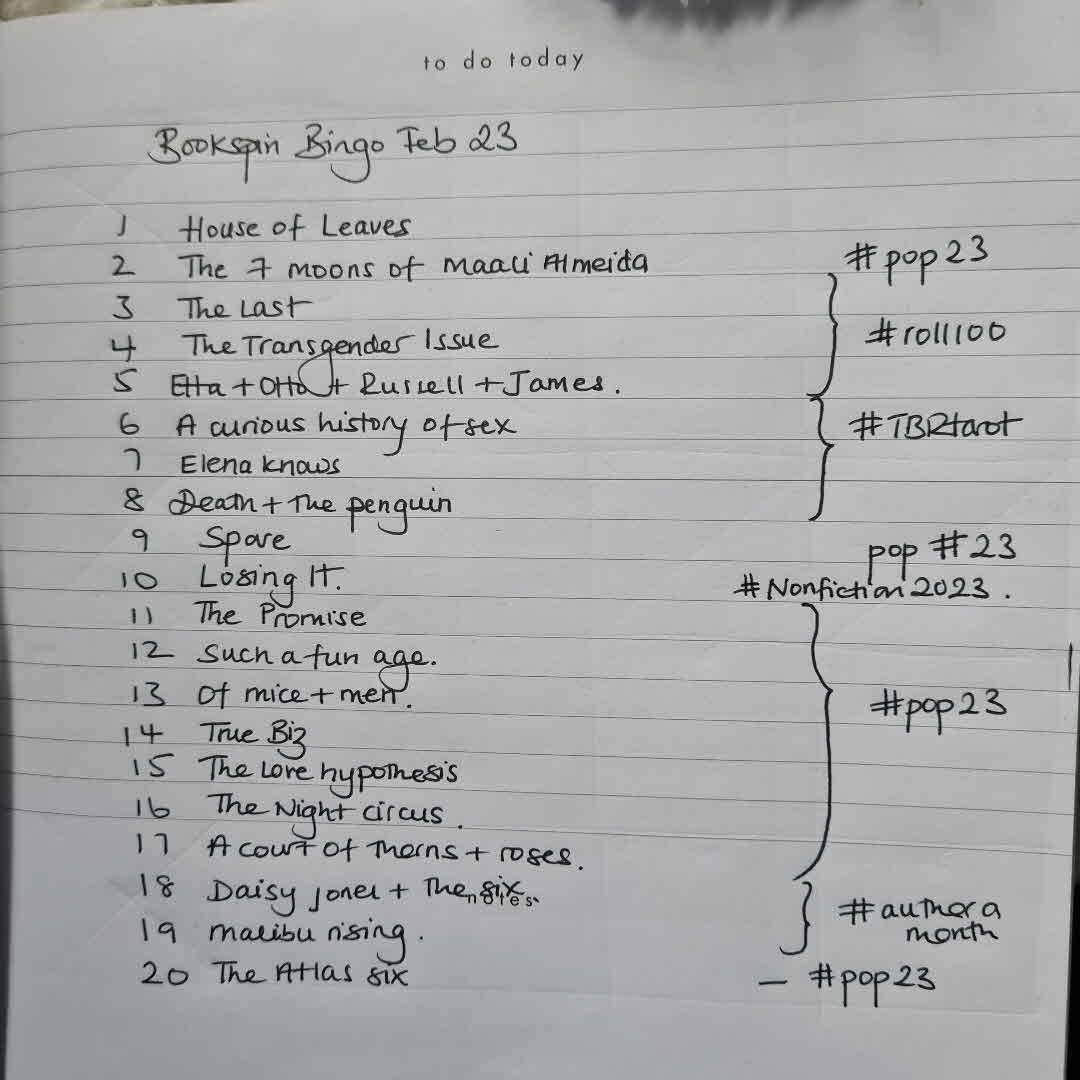 to do today
Bookspin Bingo Feb 23
1 House of Leaves
2 The 7 moons of Maali Almeida #pop23
3 The Last
4 The Transgender Issue #roll100
5 Etta + Otto + Russell + James.
6 A curious history of sex #TBRtarot
7 Elena knows
8 Death + The penguin
9 Spare pop #23
10 Losing It. #Nonfiction2023.
11 The Promise
12 Such a fun age.
13 Of mice + men. #pop23
14 True Biz
15 The Love hypothesis
16 The Night circus.
17 A court of Thorns + roses.
18 Daisy Jones + The six.
notes
19 malibu rising. #author a month
20 The Atlas six — #pop23